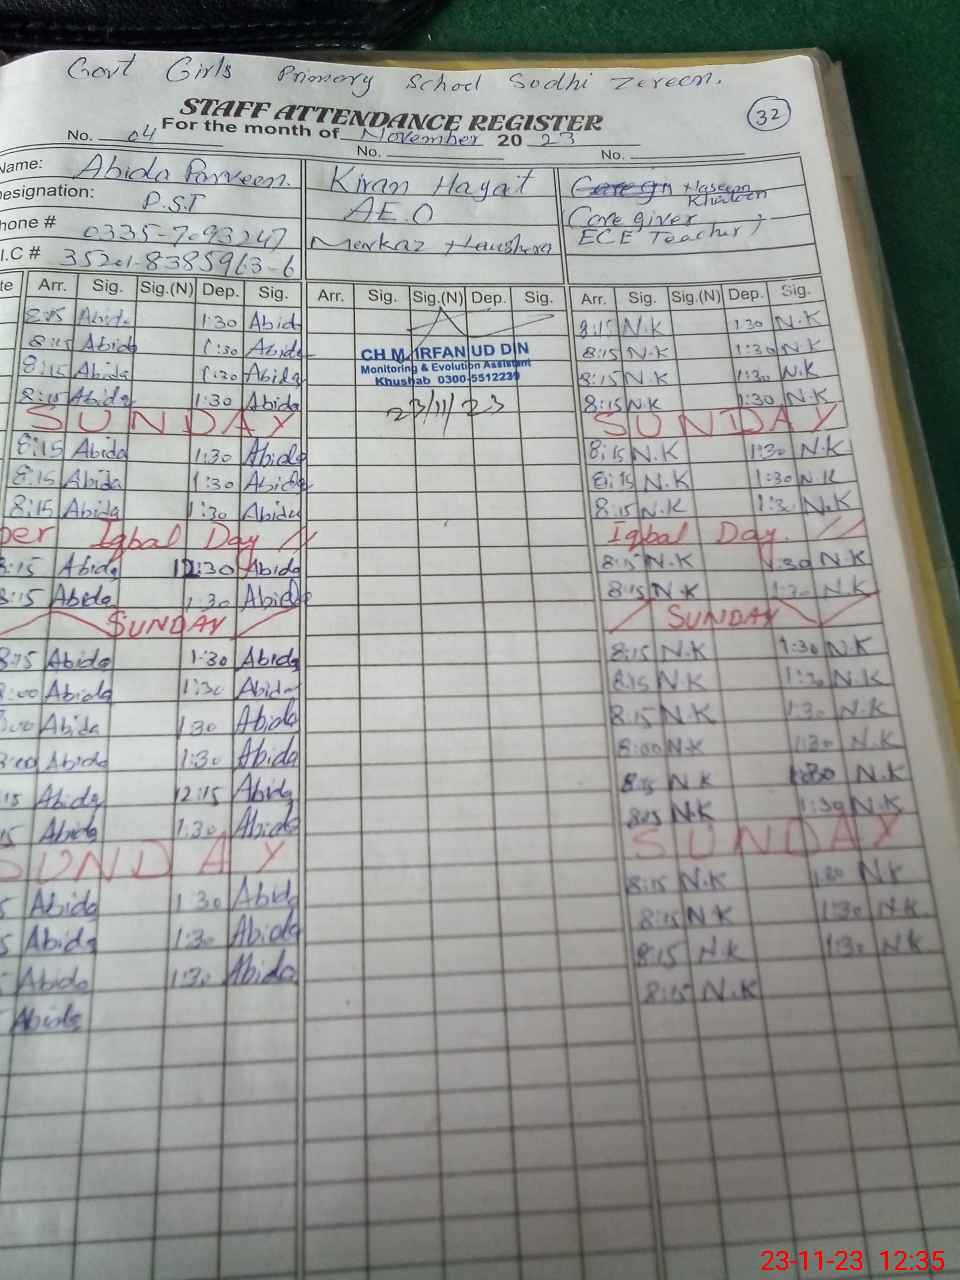 Govt Girls Primary School Sodhi Zereen.
STAFF ATTENDANCE REGISTER
32
No. 04 For the month of November 2023
No. No.
Name: Abida Parveen. Kiran Hayat Haseena
Designation: P.S.T A.E.O Khatoon
Phone # 0335-7093247 Care giver
I.C # 35201-8385963-6 Markaz Naushera ECE Teacher
Arr. Sig. Sig.(N) Dep. Sig. Arr. Sig. Sig.(N) Dep. Sig. Arr. Sig. Sig.(N) Dep. Sig.
8:15 Abida 1:30 Abida 8:15 N.K 1:30 N.K
8:15 Abida 1:30 Abida CH M. IRFAN UD DIN 8:15 N.K 1:30 N.K
8:15 Abida 1:30 Abida Monitoring & Evolution Assistant 8:15 N.K 1:30 N.K
Khushab 0300-5512239
8:15 Abida 1:30 Abida 23/11/23 8:15 N.K 1:30 N.K
SUNDAY SUNDAY
8:15 Abida 1:30 Abida 8:15 N.K 1:30 N.K
8:15 Abida 1:30 Abida 8:15 N.K 1:30 N.K
8:15 Abida 1:30 Abida 8:15 N.K 1:3 N.K
Iqbal Day Iqbal Day.
8:15 Abida 12:30 Abida 8:15 N.K 1:30 N.K
8:15 Abida 1:30 Abida 8:15 N.K 1:30 N.K
SUNDAY SUNDAY
8:15 Abida 1:30 Abida 8:15 N.K 1:30 N.K
8:00 Abida 1:30 Abida 8:15 N.K 1:30 N.K
8:00 Abida 1:30 Abida 8:15 N.K 1:30 N.K
8:00 Abida 1:30 Abida 8:00 N.K 1:30 N.K
15 Abida 12:15 Abida 8:15 N.K 1:30 N.K
15 Abida 1:30 Abida 8:15 N.K 1:30 N.K
SUNDAY SUNDAY
5 Abida 1:30 Abida 8:15 N.K 1:30 N.K
5 Abida 1:30 Abida 8:15 N.K 1:30 N.K
Abida 1:30 Abida 8:15 N.K 1:30 N.K
Abida 8:15 N.K
23-11-23 12:35